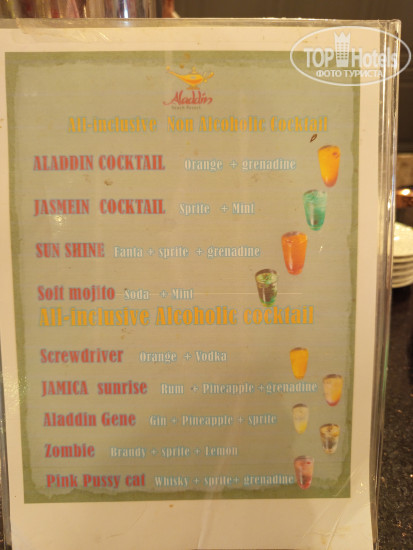 TOP Hotels
ФОТО ТУРИСТА
Aladdin
All-inclusive Non Alcoholic Cocktail
ALADDIN COCKTAIL Orange + grenadine
JASMEIN COCKTAIL Sprite + Mint
SUN SHINE Fanta + sprite + grenadine
Soft mojito Soda + Mint
All-inclusive Alcoholic cocktail
Screwdriver Orange + Vodka
JAMICA sunrise Rum + Pineapple +grenadine
Aladdin Gene Gin + Pineapple + sprite
Zombie Brandy + sprite + Lemon
Pink Pussy cat Whisky + sprite+ grenadine